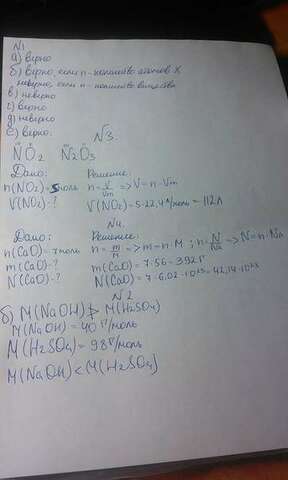 N1
а) верно
б) верно, если n - количество атомов X,
неверно, если n - количество вещества
в) неверно
г) верно
д) неверно
е) верно.
N3.
IV II III II
NO2 N2O3
Дано: Решение:
n(NO2) = 5моль n = V/Vm => V = n · Vm
V(NO2) - ? V(NO2) = 5 · 22,4 л/моль = 112л
N4.
Дано: Решение:
n(CaO) = 7 моль n = m/M => m = n · M ; n = N/NA => N = n · NA
m(CaO) - ? m(CaO) = 7 · 56 = 392г
N(CaO) - ? N(CaO) = 7 · 6.02 · 10²³ = 42,14 · 10²³
N2
б) M(NaOH) > M(H2SO4)
M(NaOH) = 40 г/моль
M(H2SO4) = 98 г/моль
M(NaOH) < M(H2SO4)